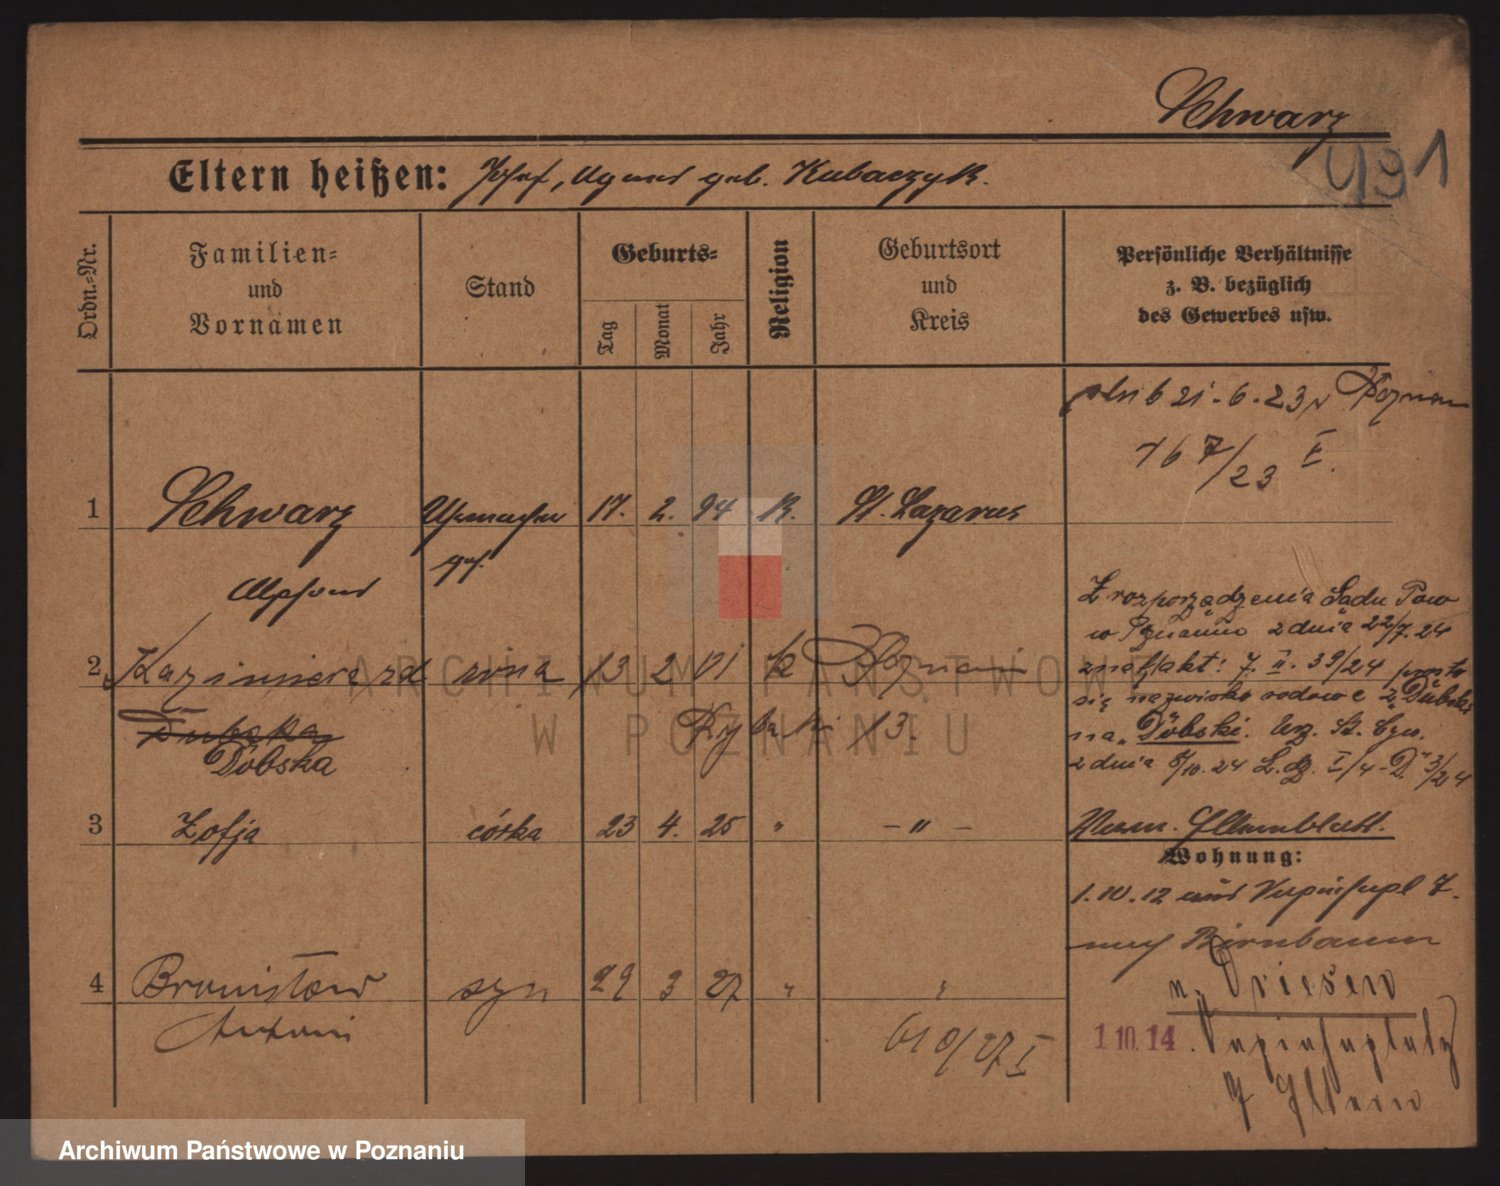 Schwarz
491
Eltern heißen: Josef, Agnes geb. Kubaczyk.
Ordn.-Nr.
Familien- und Vornamen
Stand
Geburts-
Tag
Monat
Jahr
Religion
Geburtsort und Kreis
Persönliche Verhältnisse z. B. bezüglich des Gewerbes usw.
ślub 21.6.23 w Poznan
167/23 I.
1 Schwarz Uhrmacher 17. 2. 94 K. St. Lazarus
geh.
Alphons
Z rozporządzenia Sadu Pow
w Poznaniu z dnia 22/7.24
2 Kazimiera zd żona 13 2 01 k Poznań
znak akt: 7. II. 39/24 prosto
się nazwisko rodowe z „Dubska
Dubska
Rybaki 13.
na „Döbski. Urz. St. Cyw.
Döbska
z dnia 8/10.24 L.dz. I/4-D 3/24
3 Zofja córka 23 4. 25 " – " –
Verm. Elternblatt.
Wohnung:
1.10.12 aus Kapinhupl 7.
nach Birnbaum
4 Bronisław syn 29 3 27 " "
n. Driesen
Antoni
610/27 I
1 10. 14
7 Eltern
ARCHIWUM PAŃSTWOWE
W POZNANIU
Archiwum Państwowe w Poznaniu